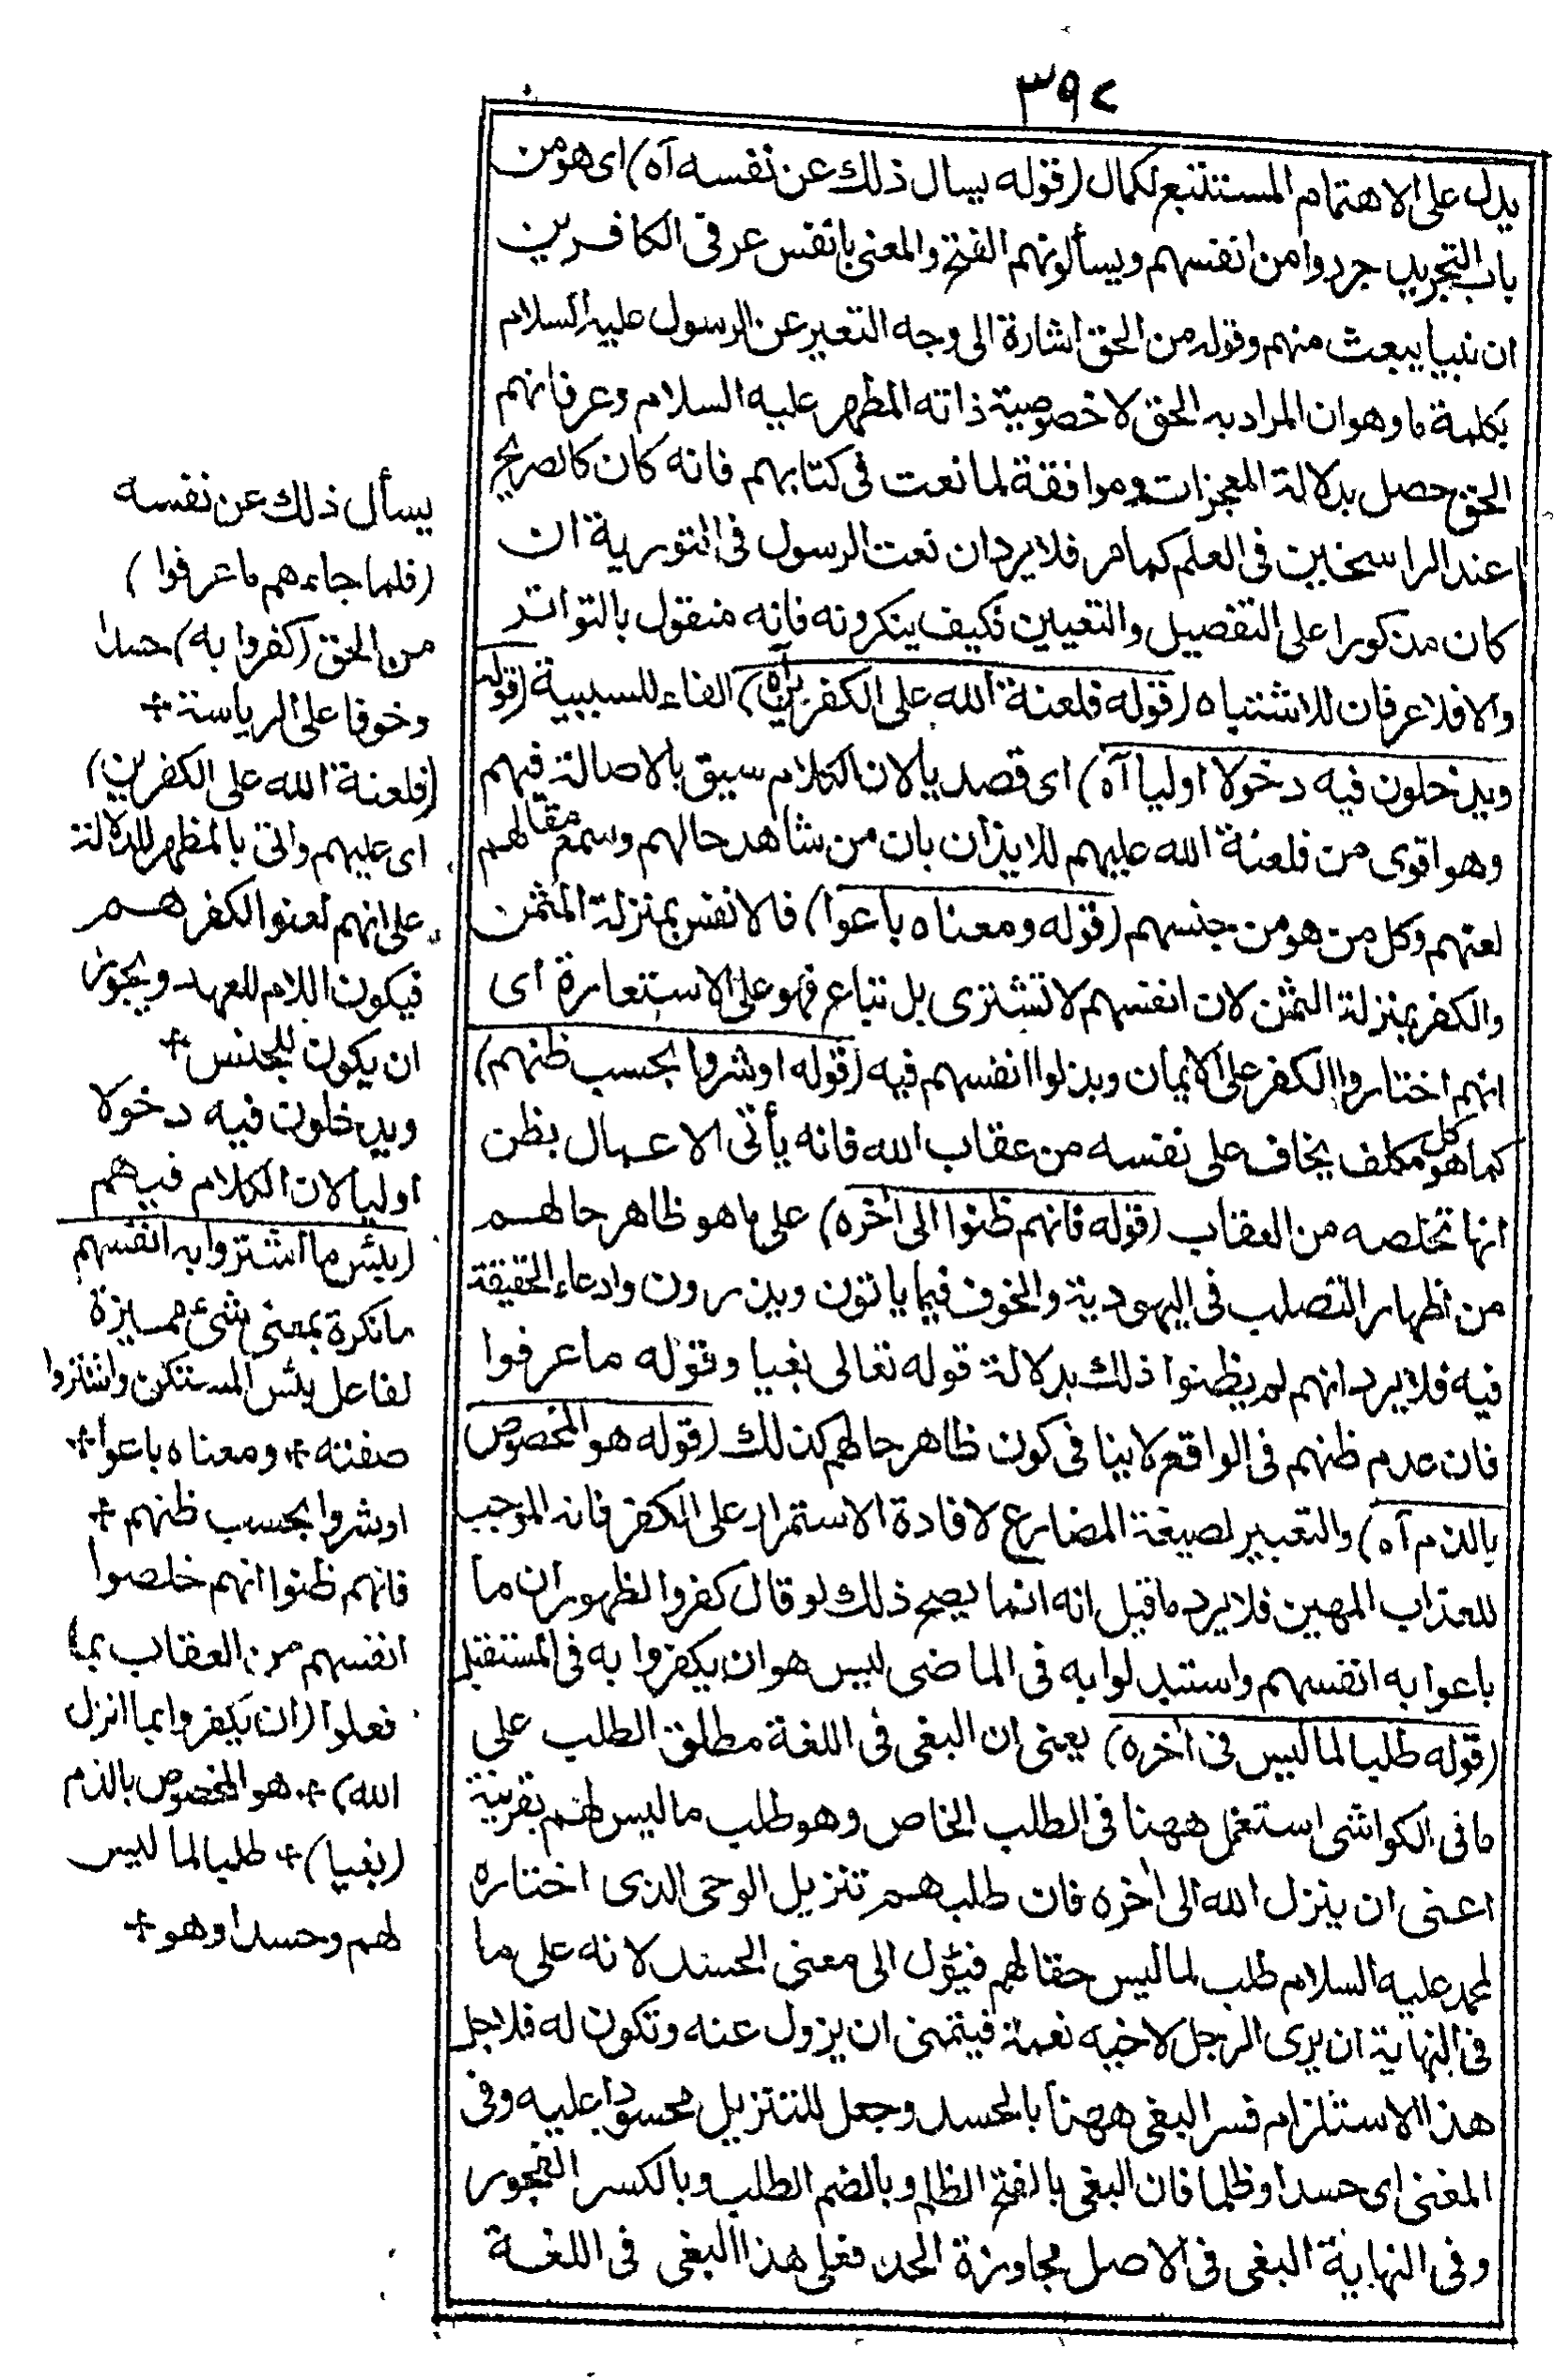 ٣٩٧
يدل على الاهتمام المستتبع لكمال (قوله يسأل ذلك عن نفسه آه) اى هو من
باب التجريد جردوا من انفسهم ويسألونهم الفتح والمعنى يا نفس عرفى الكافرين
ان نبيا يبعث منهم وقوله من الحق اشارة الى وجه التعبير عن الرسول عليه السلام
بكلمة ما وهو ان المراد به الحق لا خصوصية ذاته المطهر عليه السلام وعرفانهم
الحق حصل بدلالة المعجزات وموافقة لما نعت فى كتابهم فانه كان كالصريح
عند الراسخين فى العلم كما مر فلا يرد ان نعت الرسول فى التورية ان
كان مذكورا على التفصيل والتعيين فكيف ينكرونه فانه منقول بالتواتر
والا فلا عرفان للاشتباه (قوله فلعنة الله على الكفرين آه) الفاء للسببية (قوله
ويدخلون فيه دخولا اوليا آه) اى قصديا لان الكلام سيق بالاصالة فيهم
وهو اقوى من فلعنة الله عليهم للايذان بان من شاهد حالهم وسمع مقالهم
لعنهم وكل من هو من جنسهم (قوله ومعناه باعوا) فالانفس بمنزلة المثمن
والكفر بمنزلة الثمن لان انفسهم لا تشترى بل تباع فهو على الاستعارة اى
انهم اختاروا الكفر على الايمان وبذلوا انفسهم فيه (قوله او شروا بحسب ظنهم)
كما هو كل مكلف يخاف على نفسه من عقاب الله فانه يأتى الاعمال بظن
انها تخلصه من العقاب (قوله فانهم ظنوا الى اخره) على ما هو ظاهر حالهم
من اظهار التصلب فى اليهودية والخوف فيما ياتون ويذرون وادعاء الحقيقة
فيه فلا يرد انهم لم يظنوا ذلك بدلالة قوله تعالى بغيا وقوله ما عرفوا
فان عدم ظنهم فى الواقع لا ينافى كون ظاهر حالهم كذلك (قوله هو المخصوص
بالذم آه) والتعبير لصيغة المضارع لافادة الاستمرار على الكفر فانه الموجب
للعذاب المهين فلا يرد ما قيل انه انما يصح ذلك لو قال كفروا لظهور ان ما
باعوا به انفسهم واستبدلوا به فى الماضى ليس هو ان يكفروا به فى المستقبل
(قوله طلبا لما ليس فى اخره) يعنى ان البغى فى اللغة مطلق الطلب على
ما فى الكواشى استعمل ههنا فى الطلب الخاص وهو طلب ما ليس لهم بقرينة
اعنى ان ينزل الله الى اخره فان طلبهم تنزيل الوحى الذى اختاره
لمحمد عليه السلام طلب لما ليس حقا لهم فيؤل الى معنى الحسد لانه على ما
فى النهاية ان يرى الرجل لاخيه نعمة فيتمنى ان يزول عنه وتكون له فلاجل
هذا الاستلزام فسر البغى ههنا بالحسد وجعل للتنزيل محسودا عليه وفى
المغنى اى حسدا وظلما فان البغى بالفتح الظلم وبالضم الطلب وبالكسر الفجور
وفى النهاية البغى فى الاصل مجاوزة الحد فعلى هذا البغى فى اللغة
يسأل ذلك عن نفسه
(فلما جاءهم ما عرفوا)
من الحق (كفروا به) حسدا
وخوفا على الرياسة +
(فلعنة الله على الكفرين)
اى عليهم واتى بالمظهر للدلالة
على انهم لعنوا لكفرهم
فيكون اللام للعهد ويجوز
ان يكون للجنس +
ويدخلون فيه دخولا
اوليا لان الكلام فيهم
(بئس ما اشتروا به انفسهم
ما نكرة بمعنى شئ مميزة
لفاعل بئس المستكن واشتروا
صفته + ومعناه باعوا +
او شروا بحسب ظنهم +
فانهم ظنوا انهم خلصوا
انفسهم من العقاب بما
فعلوا (ان يكفروا بما انزل
الله) + هو المخصوص بالذم
(بغيا) + طلبا لما ليس
لهم وحسدا وهو +